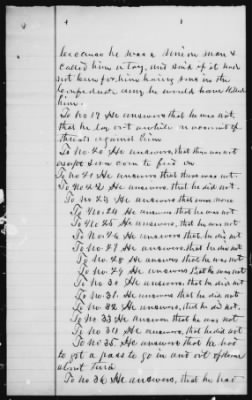 because he was a Union man &
called him a tory, and said if it had
not been for him having sons in the
Confederate army he would have killed
him.
To No 19 He answers, that he was not,
that he lay out awhile on account of
threats against him
To No. 20 He answers, that there was not
except some corn to feed on
To No 21 He answers that there was not
To No 22 He answers, that he did not.
To No 23 He answers that were none
To No. 24 He answers that he was not
To No 25 He answers, that he was not
To No 26 He answers, that he did not
To No. 27 He answers, that he did not
To No. 28 He answers that he was not
To No. 29 He answers that he was not
To No. 30 He answers, that he did not
To No. 31. He answers, that he did not
To No. 32 He answers, that he did not.
To No. 33 He answers that he was not
To No 34 He answers, that he did not
To No 35. He answers that he had
to get a pass to go in and out of
about
To No 36 He answers, that he had